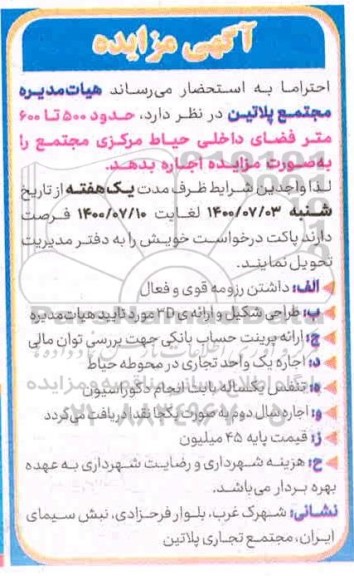 آگهی مزایده
احتراما به استحضار می‌رساند هیات‌مدیره
مجتمع پلاتین در نظر دارد، حدود ۵۰۰ تا ۶۰۰
متر فضای داخلی حیاط مرکزی مجتمع را
به‌صورت مزایده اجاره بدهد.
لذا واجدین شرایط ظرف مدت یک‌هفته از تاریخ
شنبه ۱۴۰۰/۰۷/۰۳ لغایت ۱۴۰۰/۰۷/۱۰ فرصت
دارند پاکت درخواست خویش را به دفتر مدیریت
تحویل نمایند.
الف: داشتن رزومه قوی و فعال
ب: طراحی شکیل و ارائه‌ی ۳D مورد تایید هیات‌مدیره
ج: ارائه پرینت حساب بانکی جهت بررسی توان مالی
د: اجاره یک واحد تجاری در محوطه حیاط
ه: تنفس یکساله بابت انجام دکوراسیون
و: اجاره سال دوم به صورت یکجا نقد دریافت می‌گردد
ز: قیمت پایه ۴۵ میلیون
ح: هزینه شهرداری و رضایت شهرداری به عهده
بهره بردار می‌باشد.
نشانی: شهرک غرب، بلوار فرحزادی، نبش سیمای
ایران، مجتمع تجاری پلاتین